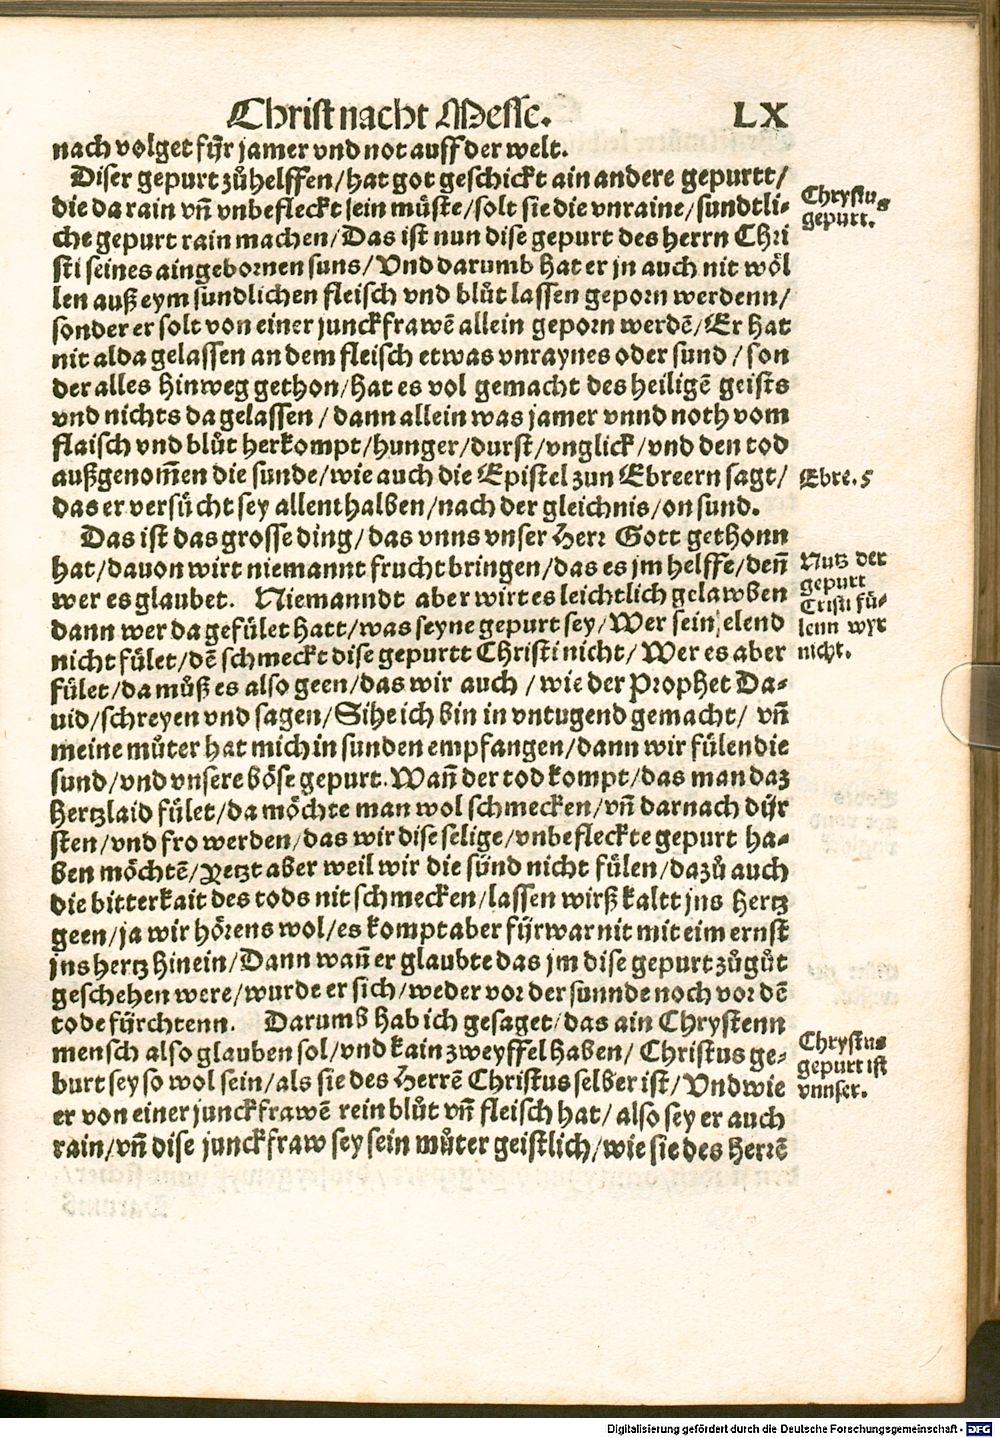 Christ nacht Messe. LX
nach volget fÿr jamer vnd not auff der welt.
Diser gepurt zůhelffen/hat got geschickt ain andere gepurtt/
die da rain vñ vnbefleckt sein müste/solt sie die vnraine/sundtli⸗
che gepurt rain machen/Das ist nun dise gepurt des herrn Chri
sti seines aingebornen suns/Vnd darumb hat er jn auch nit wöl
len auß eym sundlichen fleisch vnd blůt lassen geporn werdenn/
sonder er solt von einer junckfrawē allein geporn werdē/Er hat
nit alda gelassen an dem fleisch etwas vnraynes oder sund/son
der alles hinweg gethon/hat es vol gemacht des heiligē geists
vnd nichts da gelassen/dann allein was jamer vnnd noth vom
flaisch vnd blůt herkompt/hunger/durst/vnglick/vnd den tod
außgenom̃en die sunde/wie auch die Epistel zun Ebreern sagt/
das er versůcht sey allenthalben/nach der gleichnis/on sund.
Das ist das grosse ding/das vnns vnser Herr Gott gethonn
hat/dauon wirt niemannt frucht bringen/das es jm helffe/deñ
wer es glaubet. Niemanndt aber wirt es leichtlich gelawben
dann wer da gefület hatt/was seyne gepurt sey/Wer sein elend
nicht fület/dē schmeckt dise gepurtt Christi nicht/Wer es aber
fület/da můß es also geen/das wir auch/wie der Prophet Da⸗
uid/schreyen vnd sagen/Sihe ich bin in vntugend gemacht/vñ
meine můter hat mich in sunden empfangen/dann wir fülen die
sund/vnd vnsere böse gepurt. Wañ der tod kompt/das man daz
hertzlaid fület/da möchte man wol schmecken/vñ darnach dÿr
sten/vnd fro werden/das wir dise selige/vnbefleckte gepurt ha⸗
ben möchtē/Yetzt aber weil wir die sünd nicht fülen/dazů auch
die bitterkait des tods nit schmecken/lassen wirß kaltt jns hertz
geen/ja wir hörens wol/es kompt aber fÿrwar nit mit eim ernst
jns hertz hinein/Dann wañ er glaubte das jm dise gepurt zůgůt
geschehen were/wurde er sich/weder vor der sunnde noch vor dē
tode fürchtenn. Darumb hab ich gesaget/das ain Chrystenn
mensch also glauben sol/vnd kain zweyffel haben/Christus ge⸗
burt sey so wol sein/als sie des Herrē Christus selber ist/Vnd wie
er von einer junckfrawē rein blůt vñ fleisch hat/also sey er auch
rain/vñ dise junckfraw sey sein můter geistlich/wie sie des Herrē
Chrystus
gepurt.
Ebre. 5
Nutz der
gepurt
Cristi fü⸗
lenn wyr
nicht.
Chrystus
gepurt ist
vnnser.
Digitalisierung gefördert durch die Deutsche Forschungsgemeinschaft - DFG